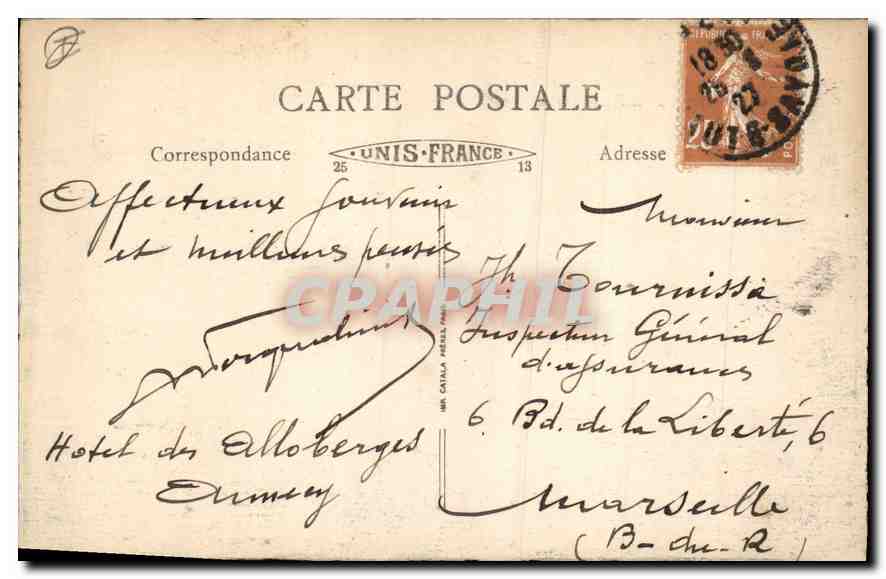 CARTE POSTALE
Correspondance
UNIS·FRANCE
25 13
Adresse
REPUBLIQUE FRANÇAISE
20c
POSTES
18 30
25 8
27
HTE-SAVOIE
Affectueux souvenir
et meilleures pensées
Hotel des Alloberges
Annecy
Monsieur
Jh. Tournissa
Inspecteur Général
d'assurances
6. Bd. de la Liberté, 6
Marseille
(B-du-R)
IMP. CATALA FRÈRES, PARIS
CPAPHIL